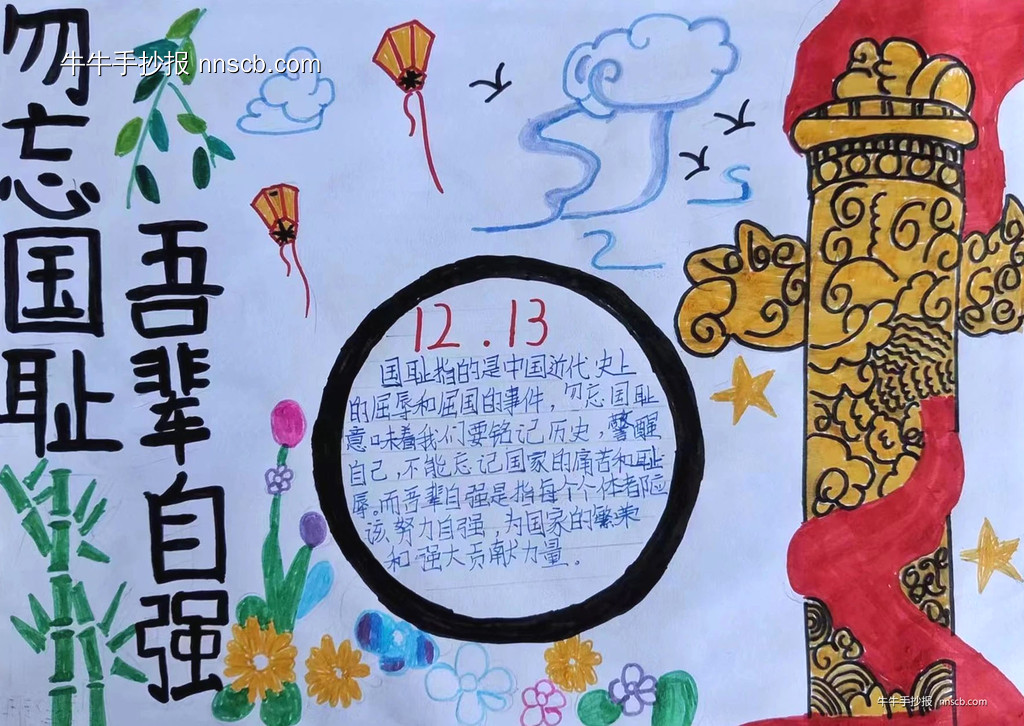 勿忘国耻
吾辈自强
牛牛手抄报 nnscb.com
12.13
国耻指的是中国近代史上
的屈辱和屈国的事件,勿忘国耻
意味着我们要铭记历史,警醒
自己,不能忘记国家的痛苦和耻
辱。而吾辈自强是指每个个体都应
该努力自强,为国家的繁荣
和强大贡献力量。
牛牛手抄报 nnscb.com